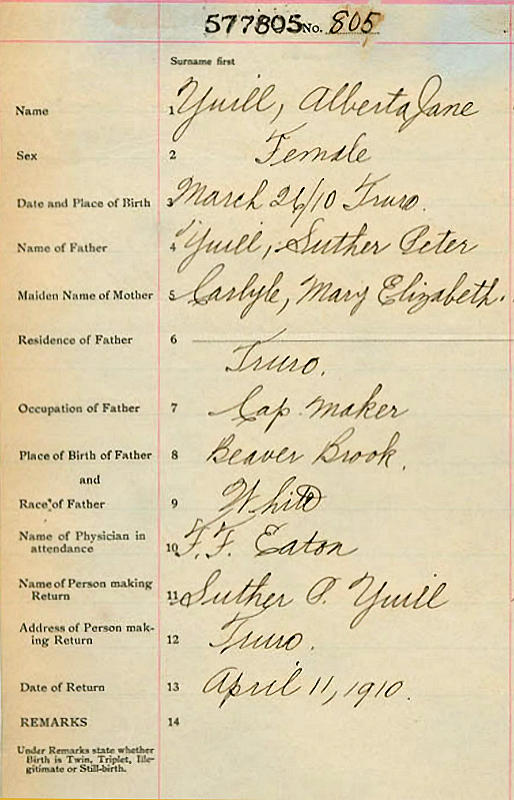 577805 No. 805
Surname first
Name 1 Yuill, Alberta Jane
Sex 2 Female
Date and Place of Birth 3 March 26/10 Truro.
Name of Father 4 Yuill, Suther Peter
Maiden Name of Mother 5 Carlyle, Mary Elizabeth.
Residence of Father 6
Truro.
Occupation of Father 7 Cap maker
Place of Birth of Father 8 Beaver Brook.
and
Race of Father 9 White
Name of Physician in
attendance 10 F. F. Eaton
Name of Person making
Return 11 Suther P. Yuill
Address of Person mak-
ing Return 12 Truro.
Date of Return 13 April 11, 1910.
REMARKS 14
Under Remarks state whether
Birth is Twin, Triplet, Ille-
gitimate or Still-birth.